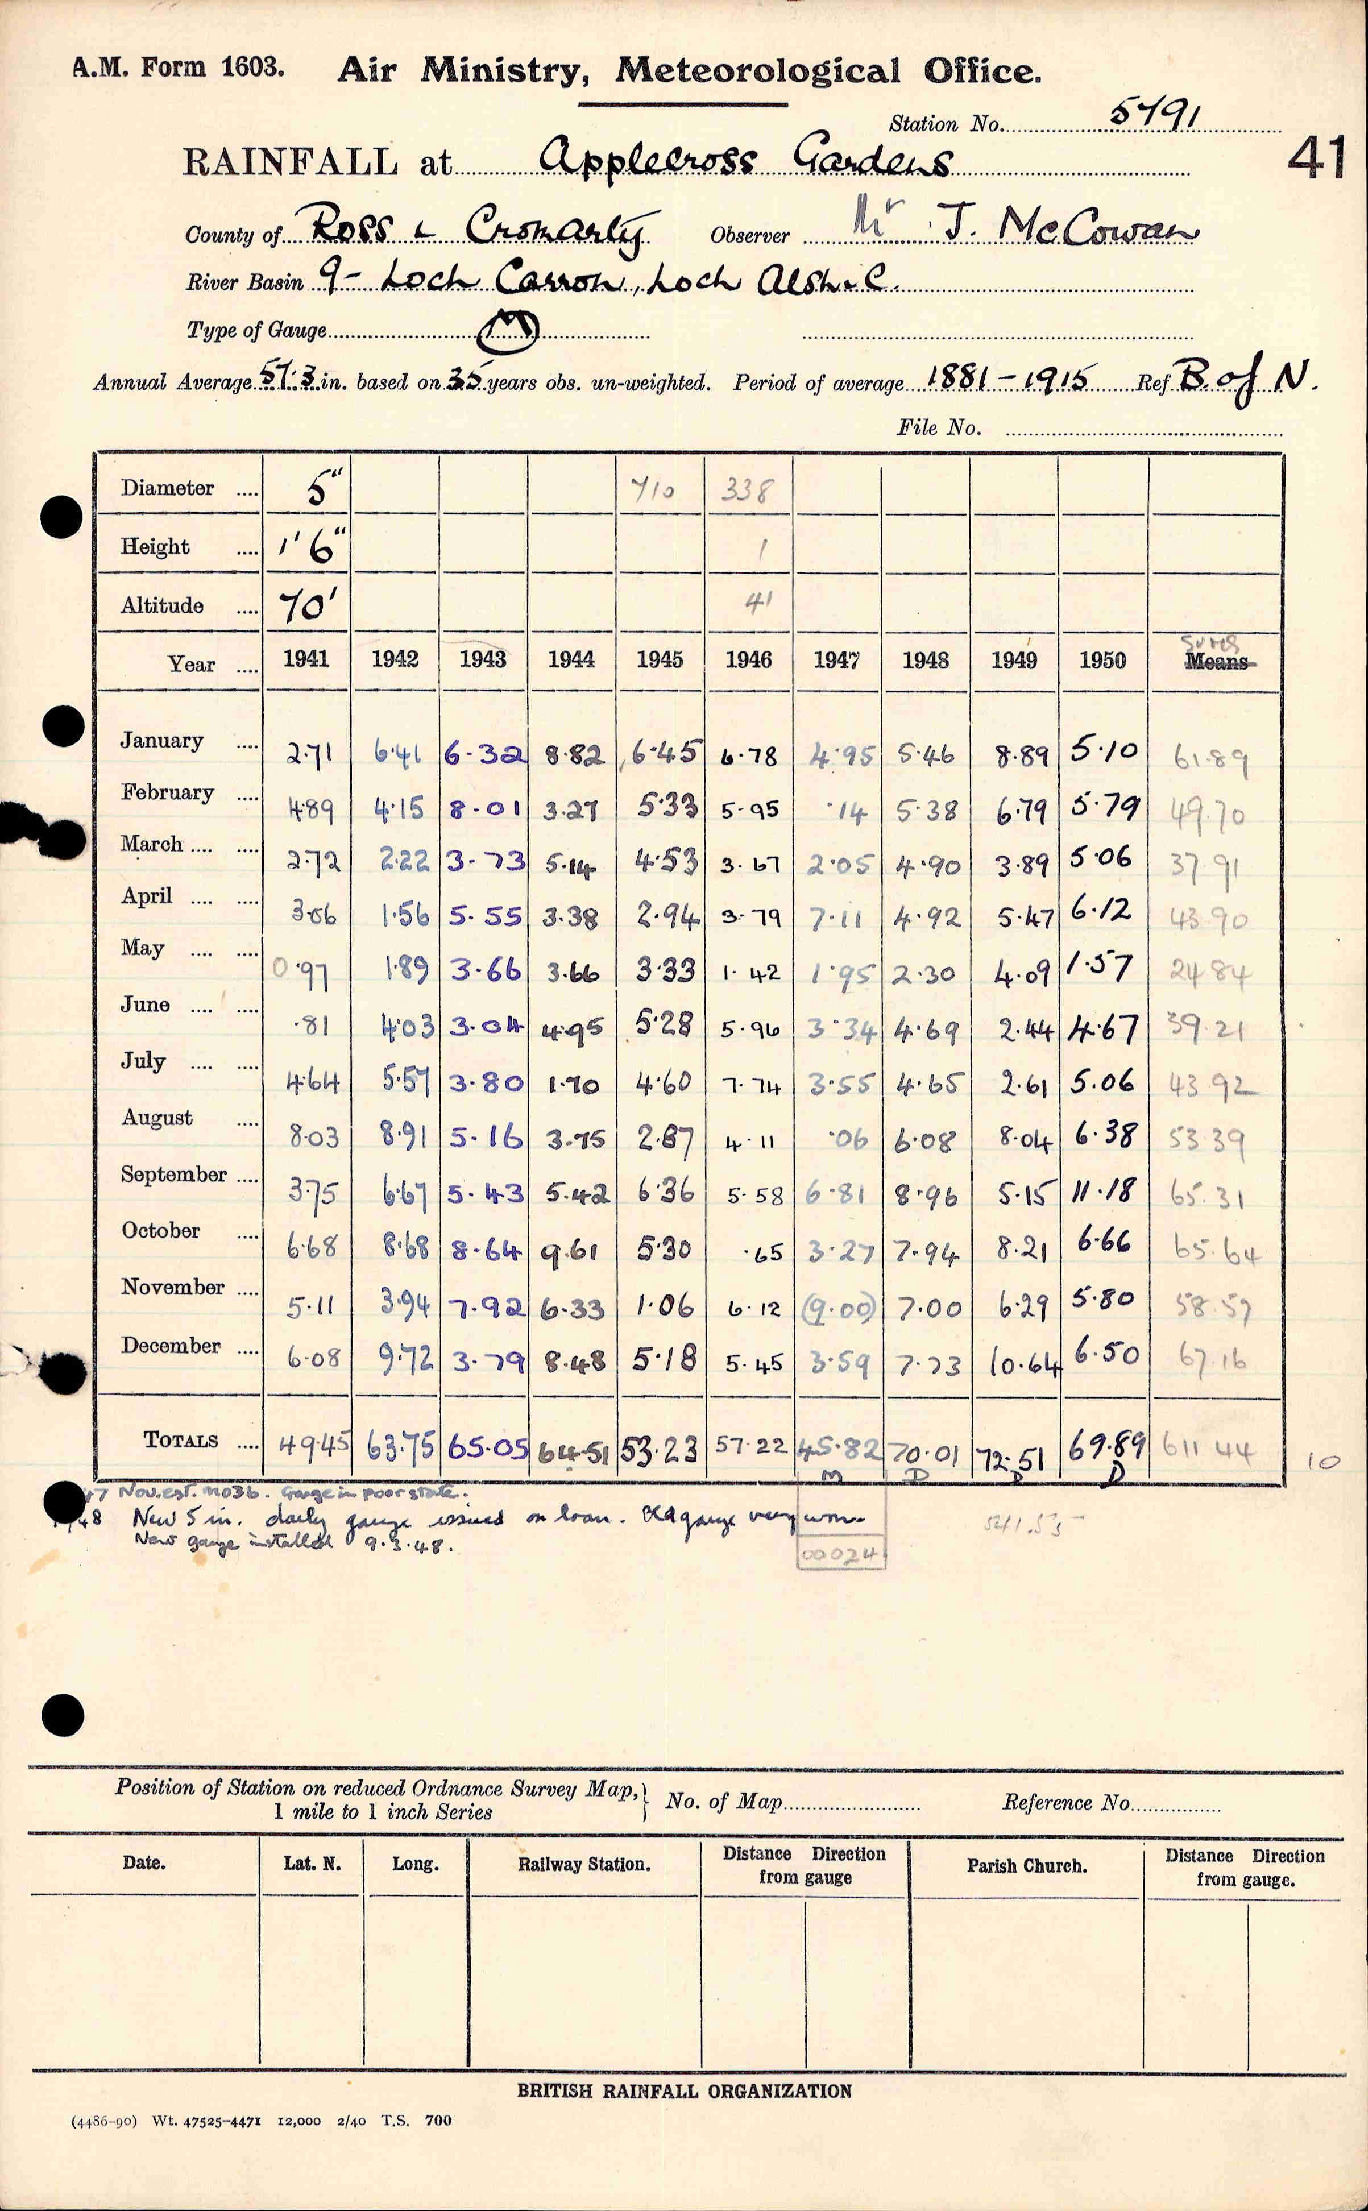 A.M. Form 1603. Air Ministry, Meteorological Office.
Station No. 5791
41
RAINFALL at Applecross Gardens
County of Ross & Cromarty Observer Mr J. McCowan
River Basin 9 - Loch Carron, Loch Alsh &c.
Type of Gauge M
Annual Average 57.3 in. based on 35 years obs. un-weighted. Period of average 1881-1915 Ref B. of N.
File No.
Diameter .... 5" 710 338
Height .... 1'6" 1
Altitude .... 70' 41
Sums
Year .... 1941 1942 1943 1944 1945 1946 1947 1948 1949 1950 Means
January .... 2.71 6.41 6.32 8.82 6.45 6.78 4.95 5.46 8.89 5.10 61.89
February .... 4.89 4.15 8.01 3.27 5.33 5.95 .14 5.38 6.79 5.79 49.70
March .... .... 2.72 2.22 3.73 5.14 4.53 3.67 2.05 4.90 3.89 5.06 37.91
April .... .... 3.06 1.56 5.55 3.38 2.94 3.79 7.11 4.92 5.47 6.12 43.90
May .... .... 0.97 1.89 3.66 3.66 3.33 1.42 1.95 2.30 4.09 1.57 24.84
June .... .... .81 4.03 3.04 4.95 5.28 5.96 3.34 4.69 2.44 4.67 39.21
July .... .... 4.64 5.57 3.80 1.70 4.60 7.74 3.55 4.65 2.61 5.06 43.92
August .... 8.03 8.91 5.16 3.75 2.87 4.11 .06 6.08 8.04 6.38 53.39
September .... 3.75 6.67 5.43 5.42 6.36 5.58 6.81 8.96 5.15 11.18 65.31
October .... 6.68 8.68 8.64 9.61 5.30 .65 3.27 7.94 8.21 6.66 65.64
November .... 5.11 3.94 7.92 6.33 1.06 6.12 (9.00) 7.00 6.29 5.80 58.57
December .... 6.08 9.72 3.79 8.48 5.18 5.45 3.59 7.73 10.64 6.50 67.16
TOTALS .... 49.45 63.75 65.05 64.51 53.23 57.22 45.82 70.01 72.51 69.89 611.44 10
M D D D
47 Nov. est. m036. Gauge in poor state.
48 New 5 in. daily gauge issued on loan. Old gauge very worn 541.55
New gauge installed 9.3.48. 00024
Position of Station on reduced Ordnance Survey Map, 1 mile to 1 inch Series } No. of Map Reference No.
Date. Lat. N. Long. Railway Station. Distance Direction from gauge Parish Church. Distance Direction from gauge.
BRITISH RAINFALL ORGANIZATION
(4486-90) Wt. 47525-4471 12,000 2/40 T.S. 700